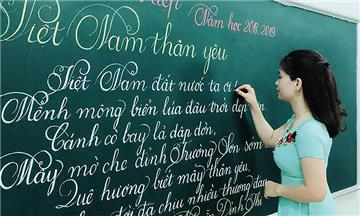 Năm học 2018-2019
Việt Nam thân yêu
Việt Nam đất nước ta ơi
Mênh mông biển lúa đâu trời đẹp
Cánh cò bay lả dập dờn,
Mây mờ che đỉnh Trường Sơn sớm
Quê hương biết mấy thân yêu,
đời đã chịu nhiều thương đau
Đình Thi